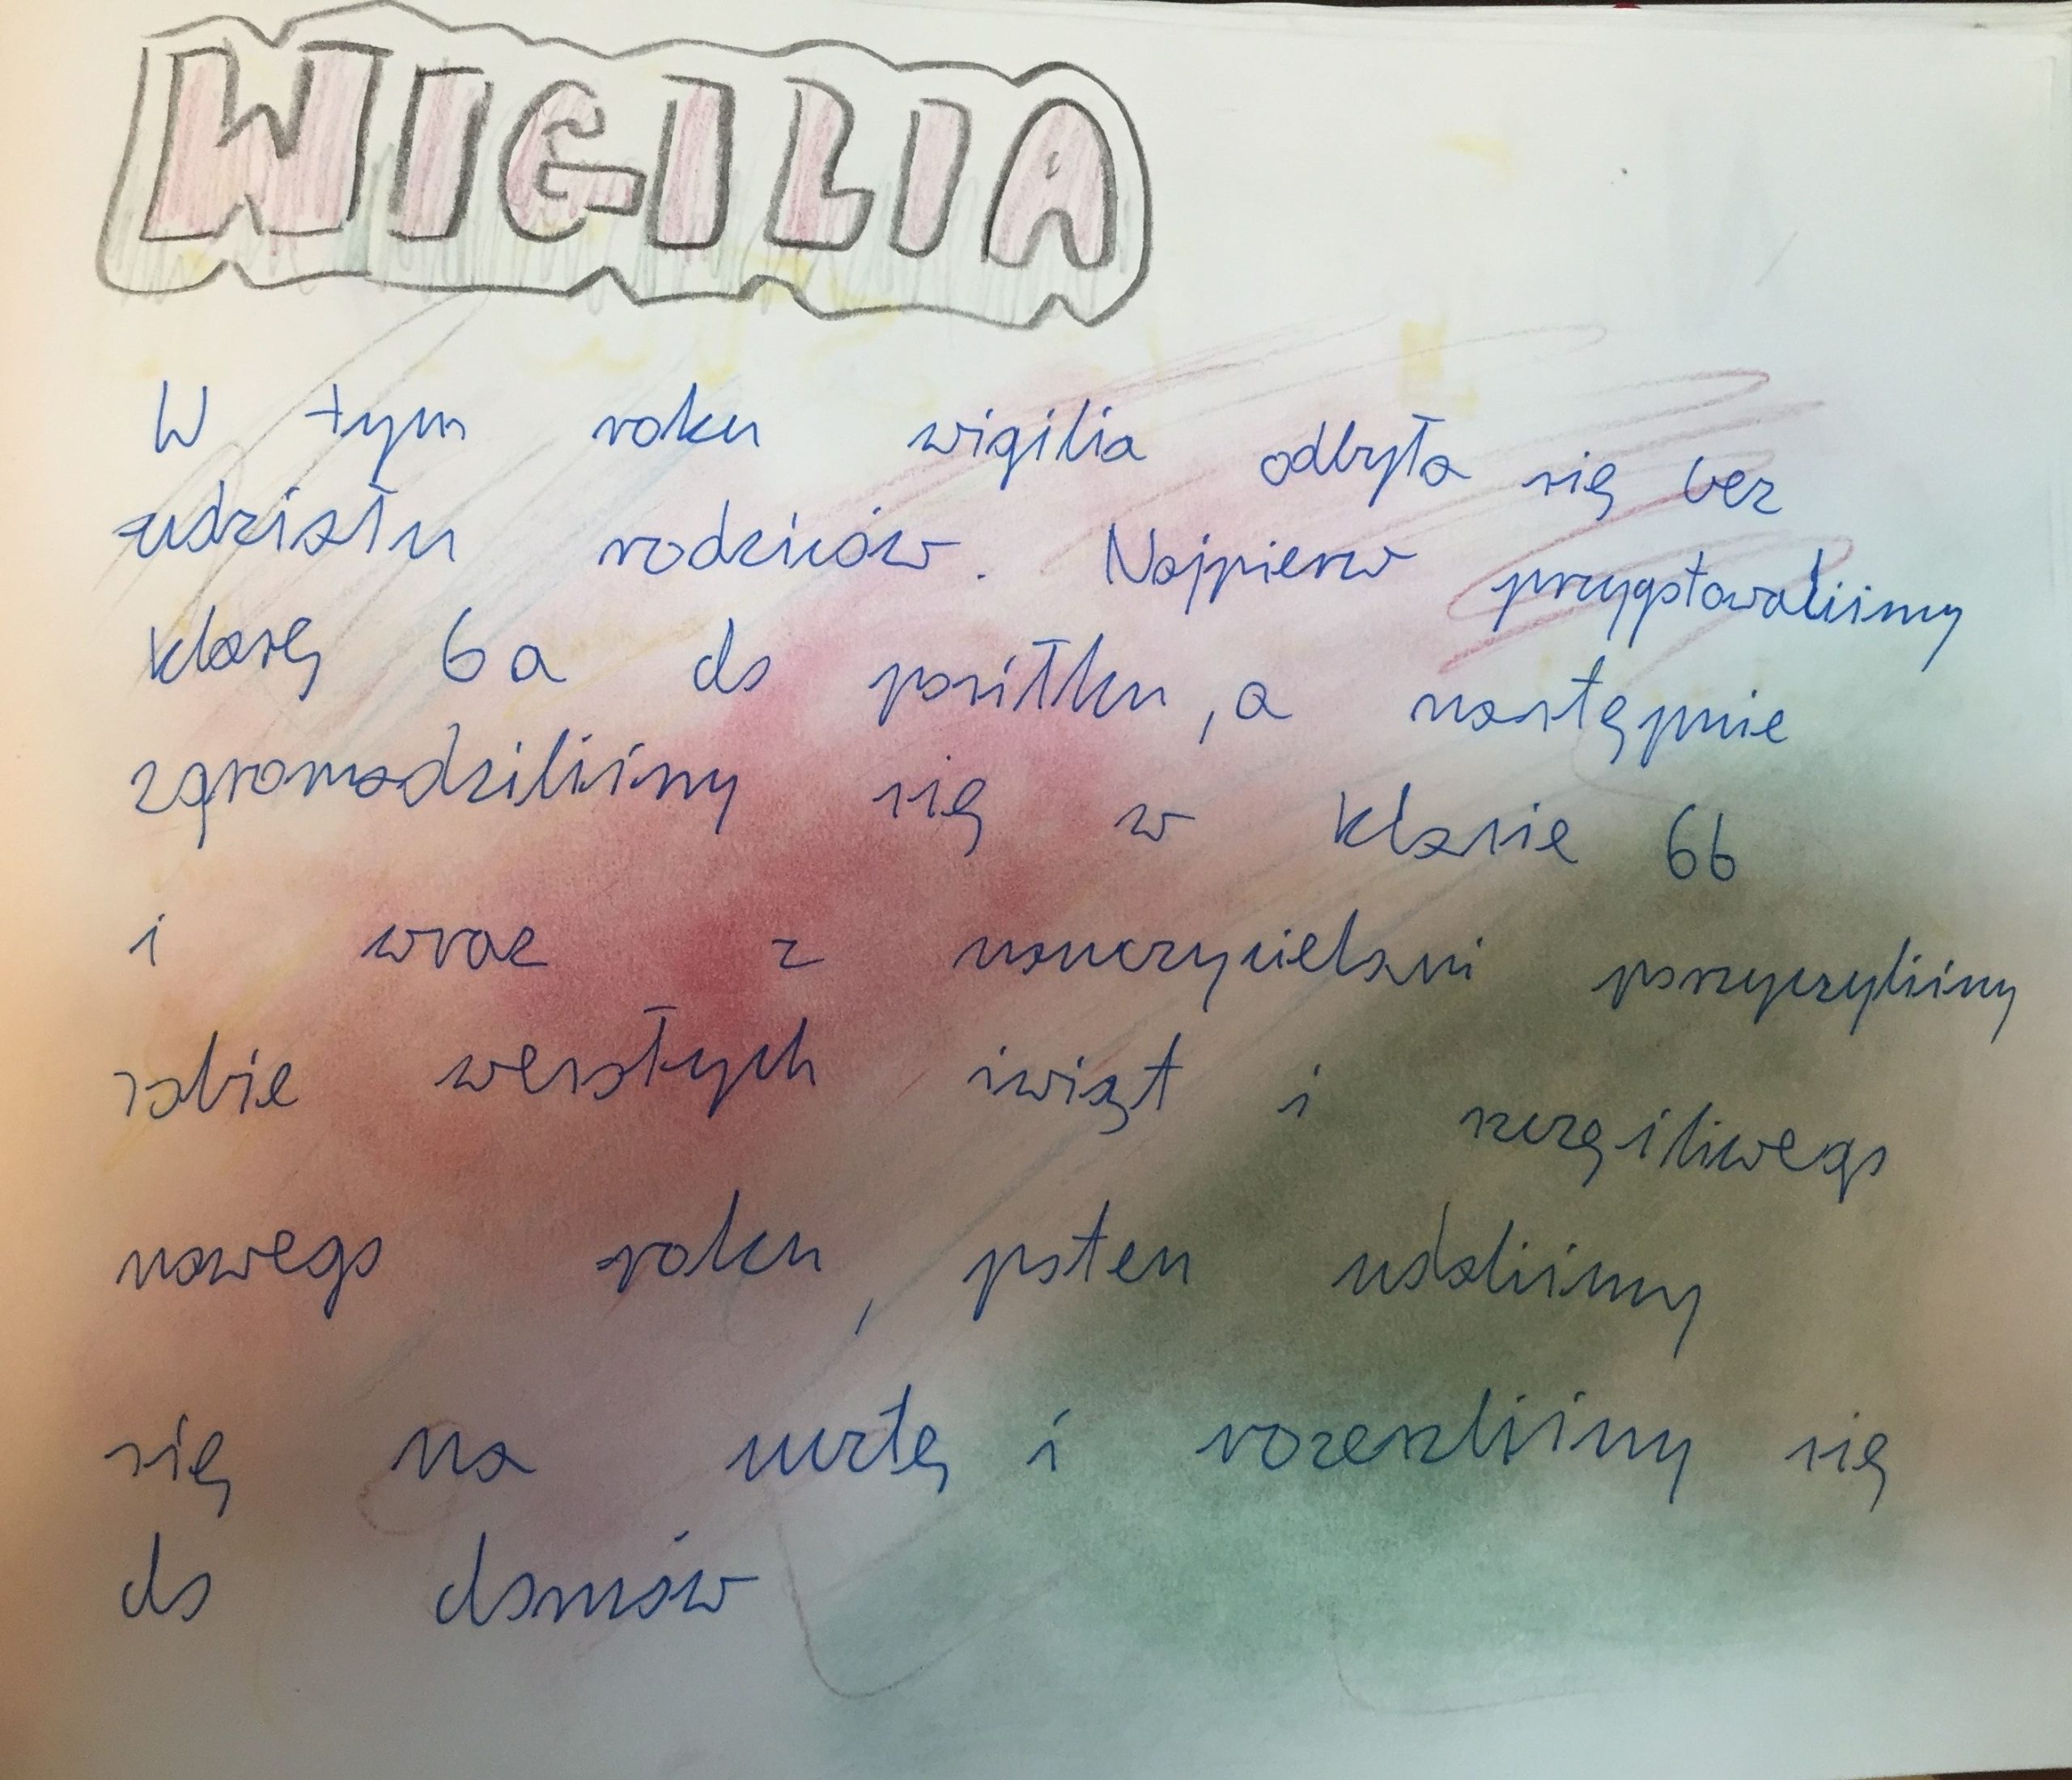 WIGILIA
W tym roku wigilia odbyła się bez
udziału rodziców. Najpierw przygotowaliśmy
klasę 6a do posiłku, a następnie
zgromadziliśmy się w klasie 6b
i wraz z nauczycielami poszyczyliśmy
sobie wesołych świąt i szczęśliwego
nowego roku, poten udaliśmy
się na ucztę i rozeszliśmy się
do domów